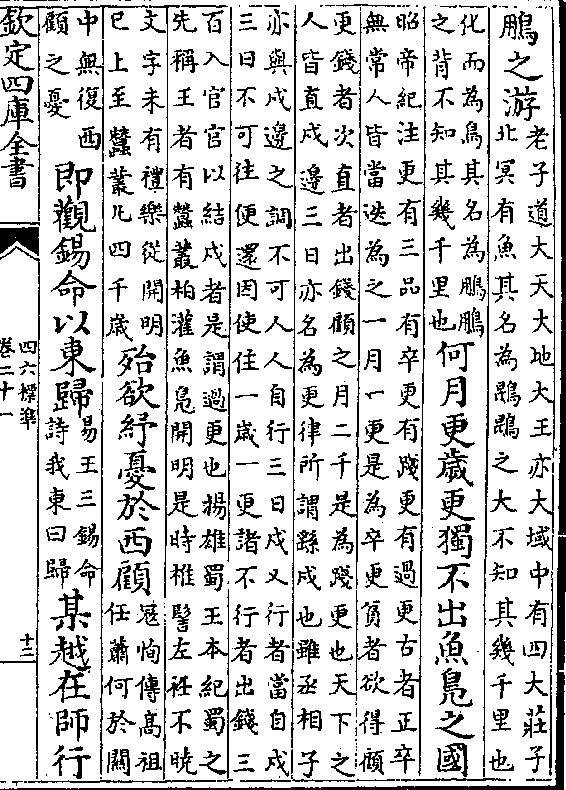 鵬之游
老子道大天大地大王亦大域中有四大莊子
北冥有魚其名為鵾鵾之大不知其幾千里也
化而為鳥其名為鵬鵬
之背不知其幾千里也
何月更歲更獨不出魚鳧之國
昭帝紀注更有三品有卒更有踐更有過更古者正卒
無常人皆當迭為之一月一更是為卒更貧者欲得顧
更錢者次直者出錢顧之月二千是為踐更也天下之
人皆直戍邊三日亦名為更律所謂繇戍也雖丞相子
亦與戍邊之調不可人人自行三日戍又行者當自戍
三日不可往便還因使住一歲一更諸不行者出錢三
百入官官以結戍者是謂過更也揚雄蜀王本紀蜀之
先稱王者有蠶叢柏灌魚鳧開明是時椎髻左衽不曉
文字未有禮樂從開明
已上至蠶叢凡四千歲
殆欲紓憂於西顧
寇恂傳高祖
任蕭何於關
中無復西
顧之憂
即觀錫命以東歸
易王三錫命
詩我東曰歸
某越在師行
欽定四庫全書
四六標準
卷二十一
十三